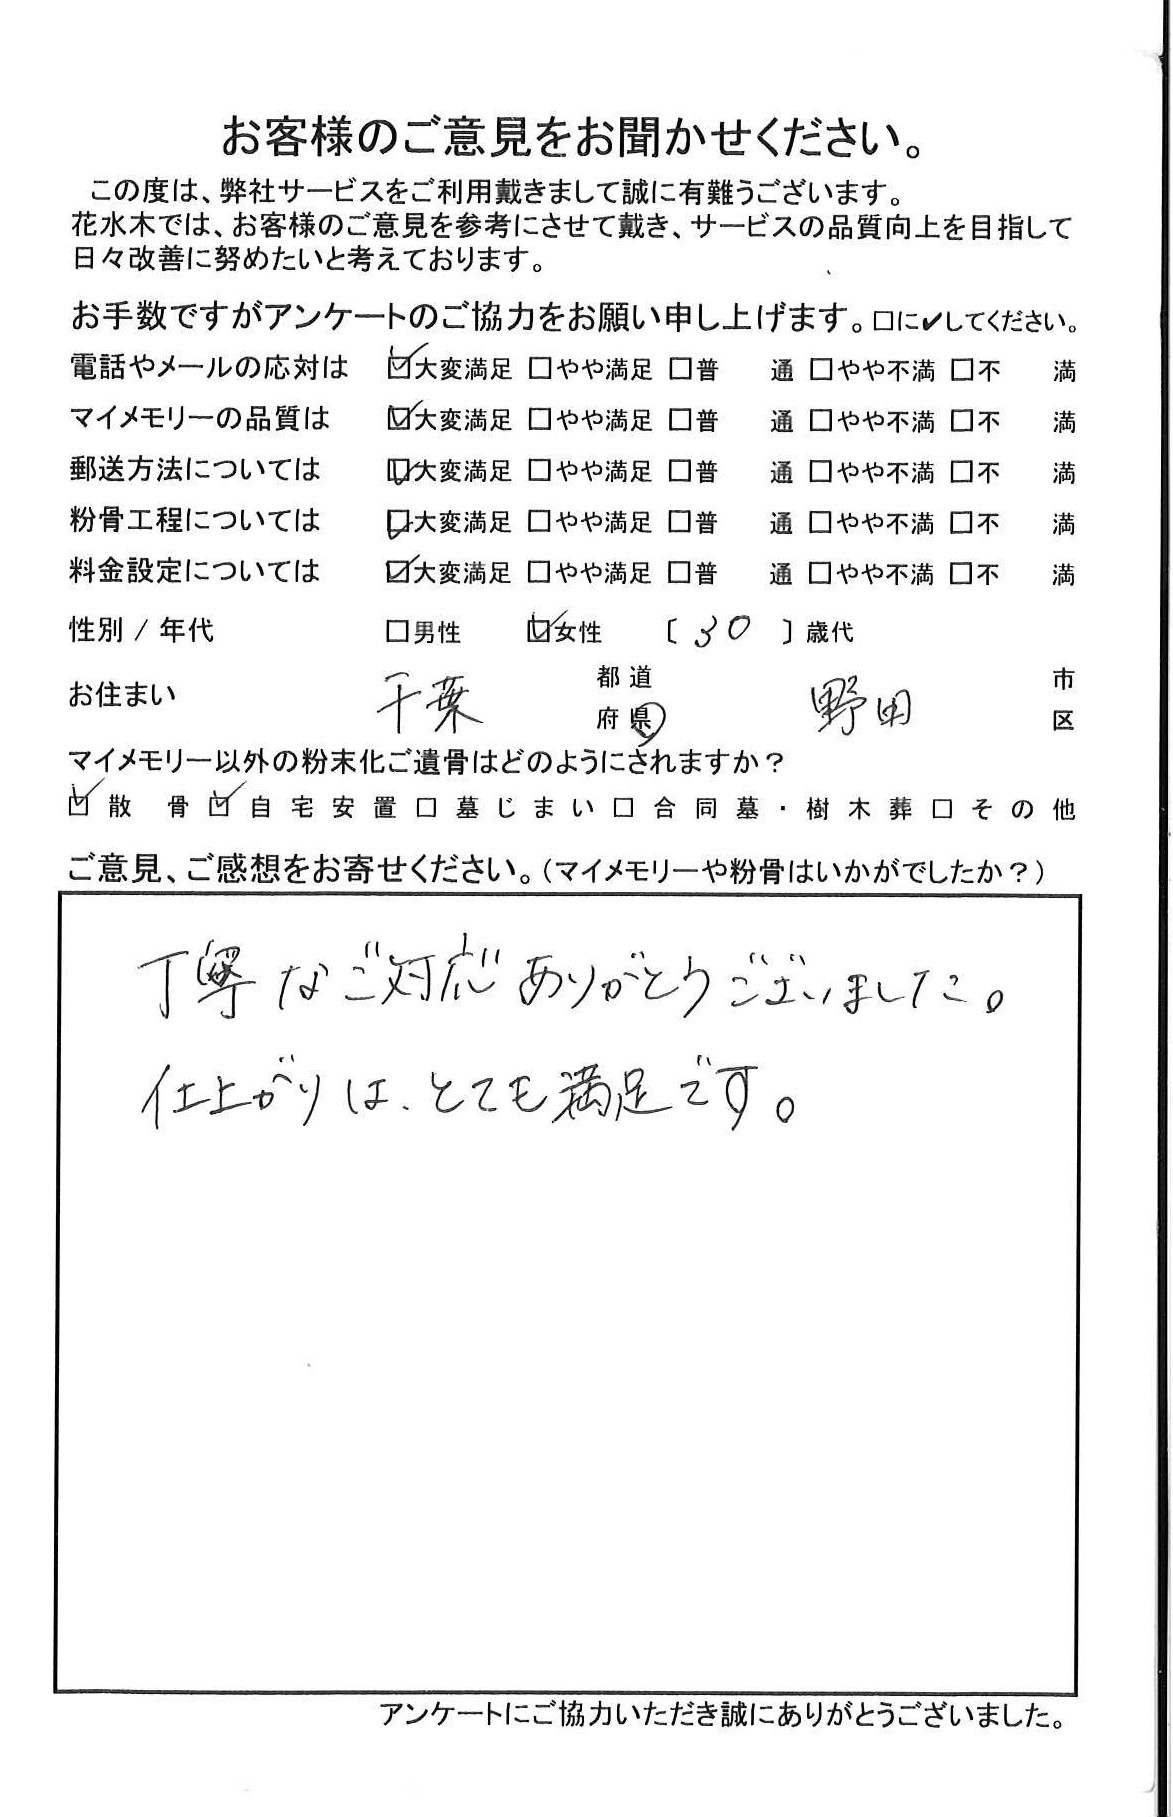 お客様のご意見をお聞かせください。
この度は、弊社サービスをご利用戴きまして誠に有難うございます。
花水木では、お客様のご意見を参考にさせて戴き、サービスの品質向上を目指して
日々改善に努めたいと考えております。
お手数ですがアンケートのご協力をお願い申し上げます。□に✔してください。
電話やメールの応対は ☑大変満足 □やや満足 □普 通 □やや不満 □不 満
マイメモリーの品質は ☑大変満足 □やや満足 □普 通 □やや不満 □不 満
郵送方法については ☑大変満足 □やや満足 □普 通 □やや不満 □不 満
粉骨工程については ☑大変満足 □やや満足 □普 通 □やや不満 □不 満
料金設定については ☑大変満足 □やや満足 □普 通 □やや不満 □不 満
性別 / 年代 □男性 ☑女性 〔 30 〕歳代
お住まい 千葉 都道府県 野田 市区
マイメモリー以外の粉末化ご遺骨はどのようにされますか？
☑散 骨 ☑自宅安置 □墓じまい □合同墓・樹木葬 □その他
ご意見、ご感想をお寄せください。（マイメモリーや粉骨はいかがでしたか？）
丁寧なご対応ありがとうございました。
仕上がりは、とても満足です。
アンケートにご協力いただき誠にありがとうございました。